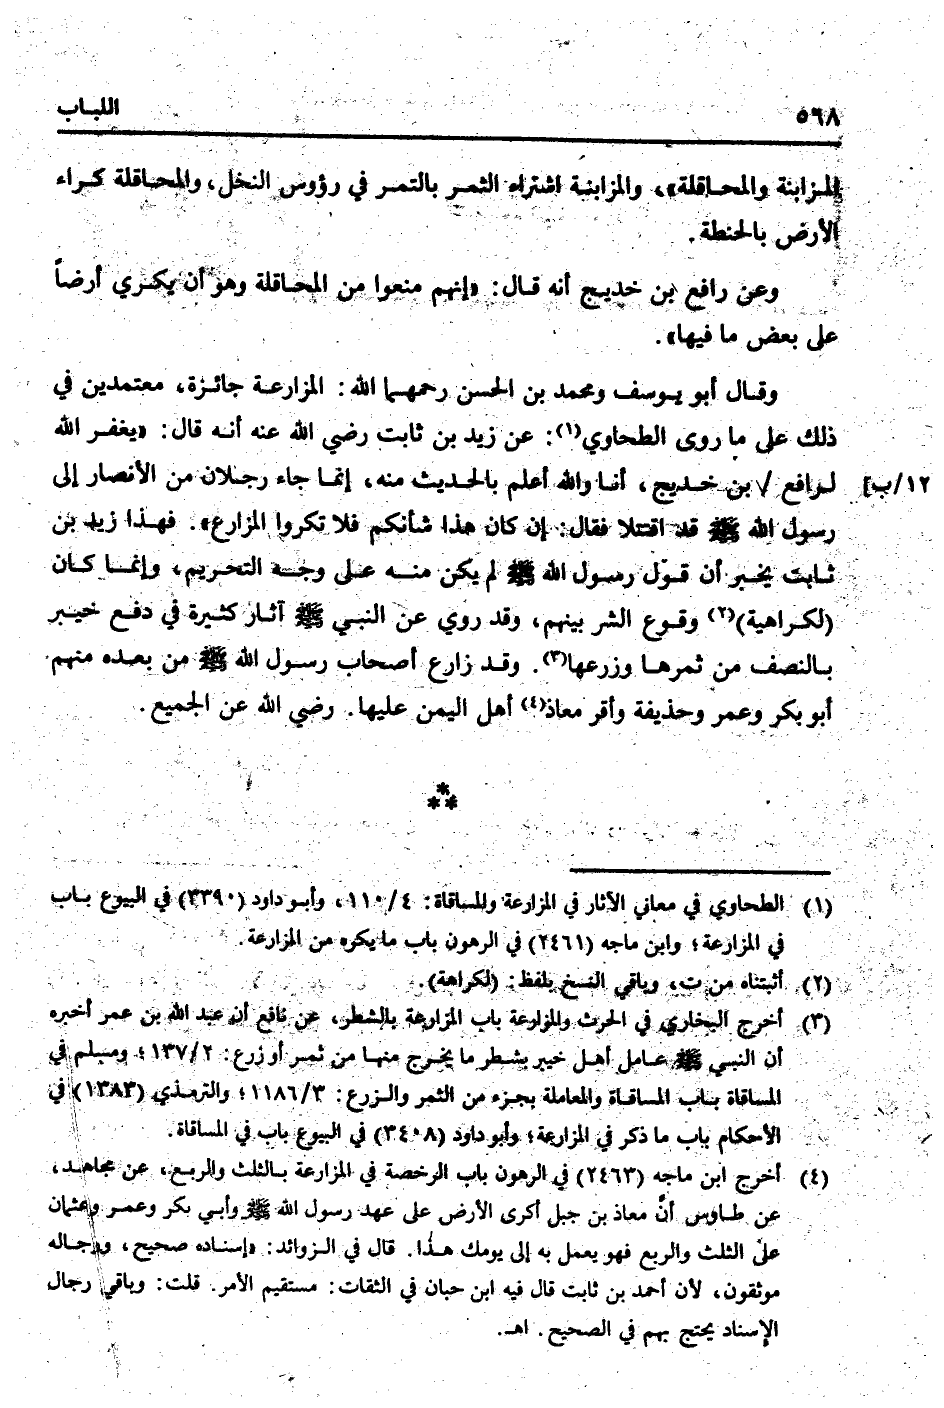 ٥٦٨ اللبـاب
المـزابنة والمحـاقلة»، والمزابنـة اشتراء الثمـر بالتمـر في رؤوس النخل، والمحـاقلة كـراء
الأرض بالحنطة.
وعن رافع بن خديـج أنه قـال: «إنهم منعوا من المحـاقلة وهو أن يكـري أرضاً
على بعض ما فيها».
وقـال أبو يـوسف ومحمد بن الحسن رحمهـما الله: المزارعـة جائـزة، معتمدين في
ذلك على ما روى الطحاوي(١): عن زيد بن ثابت رضي الله عنه أنـه قال: «يغفـر الله
لـرافع / بن خـديج، أنـا والله أعلم بالحـديث منه، إنمـا جاء رجـلان من الأنصار إلى [١٢/ب]
رسول الله ﷺ قد اقتتلا فقال: إن كان هذا شأنكم فلا تكروا المزارع». فهـذا زيد بن
ثـابت يخـبر أن قـول رسول الله ﷺ لم يكن منـه عـلى وجـه التحـريم، وإنمـا كـان
(لكـراهية)(٢) وقـوع الشر بينهم، وقد روي عن النبـي ﷺ آثـار كثـيرة في دفـع خيـبر
بـالنصف من ثمرهـا وزرعها(٣). وقـد زارع أصحاب رسـول الله ﷺ من بعـده منهم
أبو بكر وعمر وحذيفة وأقر معاذ(٤) أهل اليمن عليها. رضي الله عن الجميع.
***
(١) الطحاوي في معاني الآثار في المزارعة والمساقاة: ٤/١١٠، وأبـو داود (٣٣٩٠) في البيوع بـاب
في المزارعة؛ وابن ماجه (٢٤٦١) في الرهون باب ما يكره من المزارعة.
(٢) أثبتناه من ت، وباقي النسخ بلفظ: (لكراهة).
(٣) أخرج البخاري في الحرث والمزارعة باب المزارعة بالشطر، عن نافع أن عبد الله بن عمر أخبره
أن النبـي ﷺ عـامل أهـل خيبر بشطـر ما يخـرج منهـا من ثمـر أو زرع: ٢/١٣٧؛ ومسـلم في
المساقاة بـاب المساقـاة والمعاملة بجـزء من الثمر والـزرع: ٣/١١٨٦؛ والترمـذي (١٣٨٣) في
الأحكام باب ما ذكر في المزارعة؛ وأبو داود (٣٤٠٨) في البيوع باب في المساقاة.
(٤) أخرج ابن ماجه (٢٤٦٣) في الرهون باب الرخصة في المزارعة بـالثلث والربـع، عن مجاهـد،
عن طـاوس أنَّ معاذ بن جبل أكرى الأرض على عهد رسول الله ﷺ وأبـي بكر وعمـر وعثمان
على الثلث والربع فهو يعمل به إلى يومك هـذا. قال في الـزوائد: «إسنـاده صحيح، ورجـاله
موثقون، لأن أحمد بن ثابت قال فيه ابن حبان في الثقات: مستقيم الأمر. قلت: وباقي رجال
الإسناد يحتج بهم في الصحيح. اهـ.